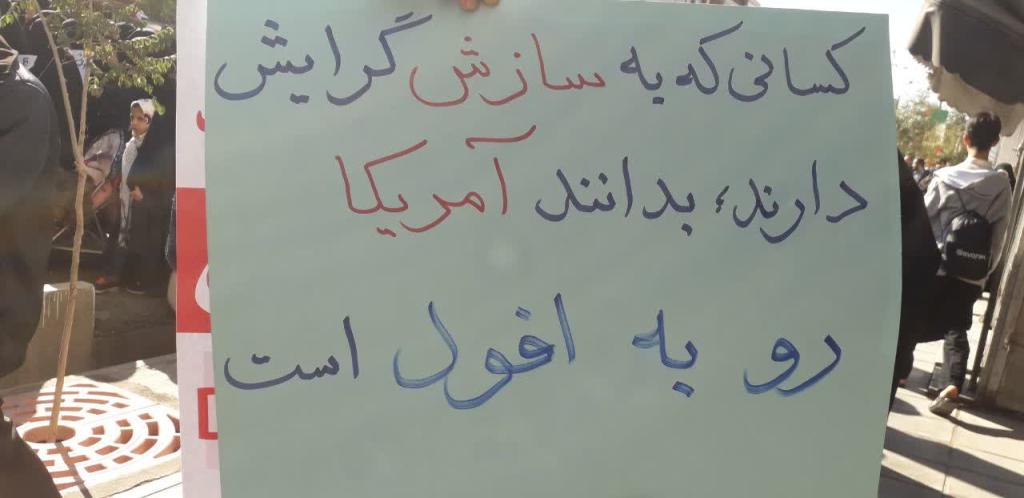 کسانی که به سازش گرایش
دارند؛ بدانند آمریکا
رو به افول است